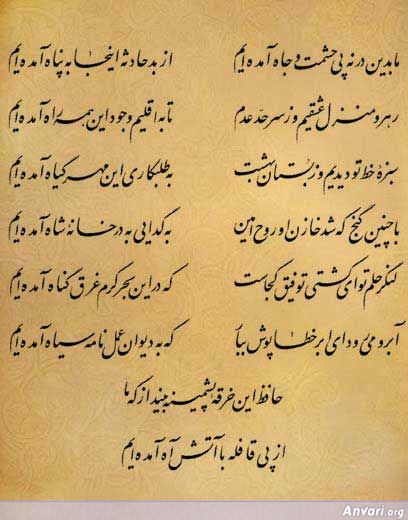 ما بدین در نه پی حشمت و جاه آمده‌ایم از بد حادثه اینجا به پناه آمده‌ایم
رهرو منزل عشقیم و ز سر حد عدم تا به اقلیم وجود این همه راه آمده‌ایم
سبزه خط تو دیدیم و ز بستان بهشت به طلبکاری این مهر گیاه آمده‌ایم
با چنین گنج که شد خازن او روح امین به گدایی به در خانه شاه آمده‌ایم
لنگر حلم تو ای کشتی توفیق کجاست که در این بحر کرم غرق گناه آمده‌ایم
آبرو می‌رود ای ابر خطاپوش ببار که به دیوان عمل نامه سیاه آمده‌ایم
حافظ این خرقه پشمینه بینداز که ما
از پی قافله با آتش آه آمده‌ایم
Anvari.org